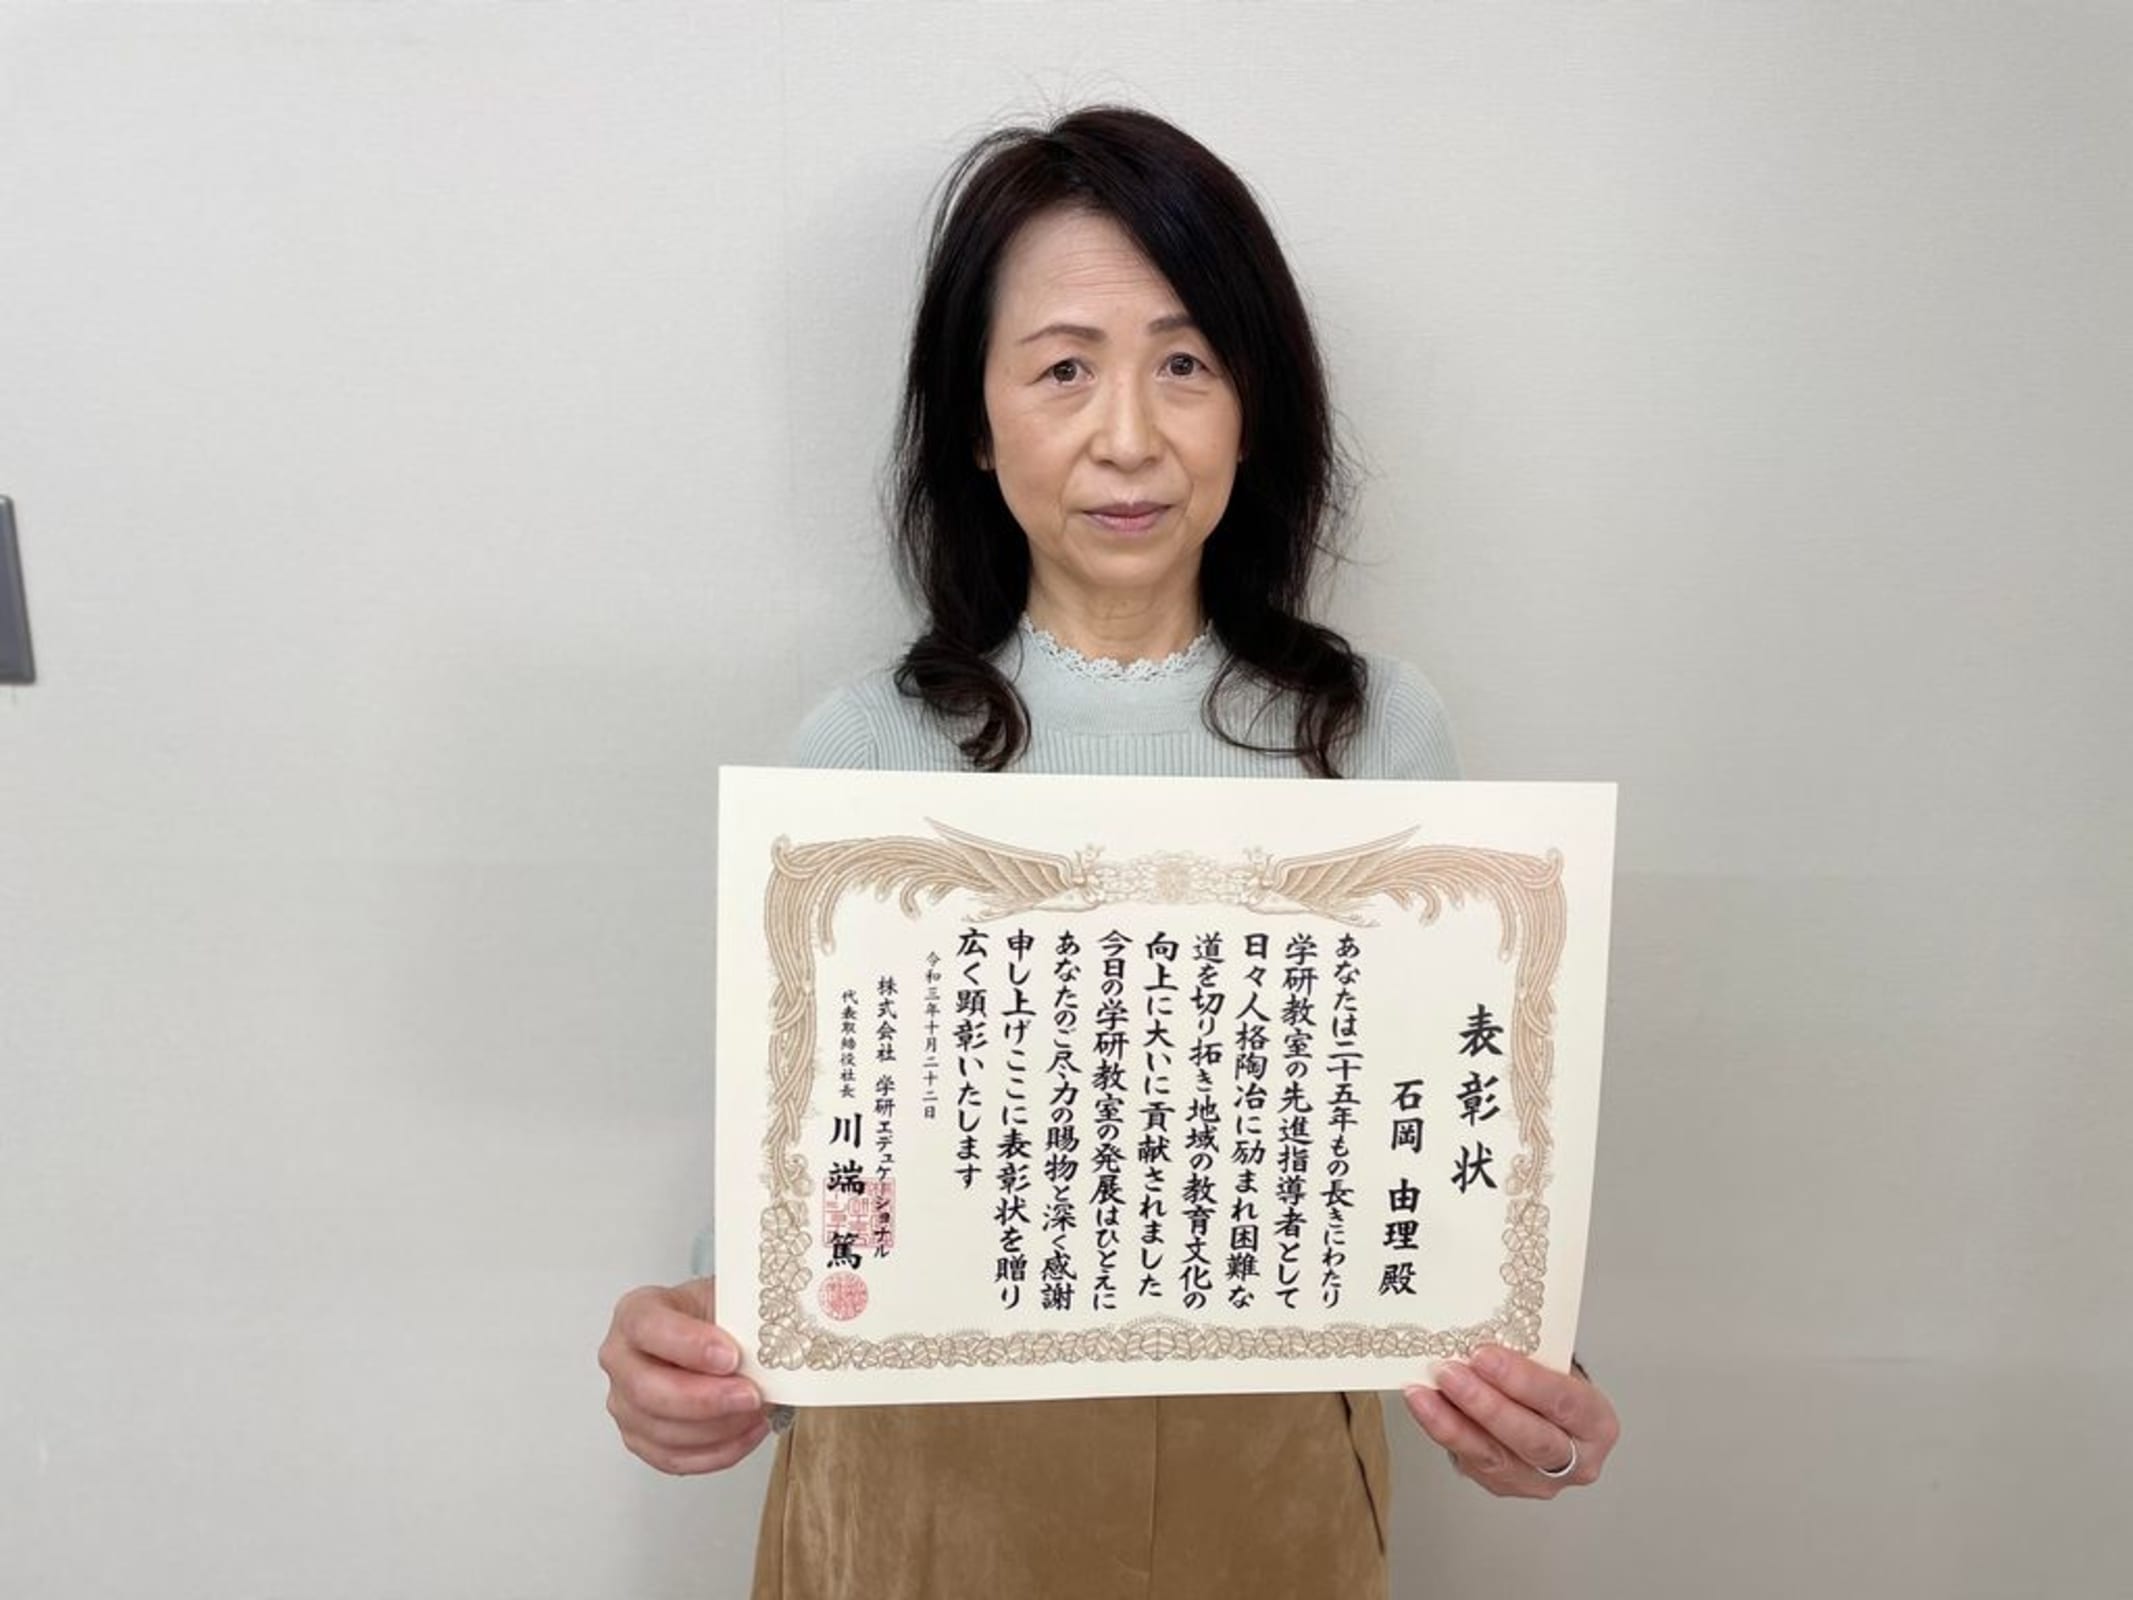 表彰状
石岡 由理 殿
あなたは二十五年もの長きにわたり
学研教室の先進指導者として
日々人格陶冶に励まれ困難な
道を切り拓き地域の教育文化の
向上に大いに貢献されました
今日の学研教室の発展はひとえに
あなたのご尽力の賜物と深く感謝
申し上げここに表彰状を贈り
広く顕彰いたします
令和三年十月二十二日
株式会社 学研エデュケーショナル
代表取締役社長 川端 篤